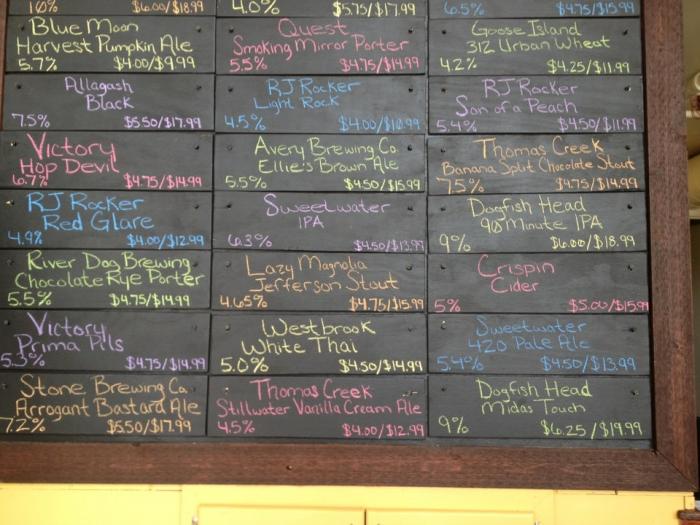 10% $6.00/$18.99
4.0% $5.75/$17.99
6.5% $4.75/$15.99
Blue Moon
Harvest Pumpkin Ale
5.7% $4.00/$9.99
Quest
Smoking Mirror Porter
5.5% $4.75/$14.99
Goose Island
312 Urban Wheat
4.2% $4.25/$11.99
Allagash
Black
7.5% $5.50/$17.99
RJ Rocker
Light Rock
4.5% $4.00/$10.99
RJ Rocker
Son of a Peach
5.4% $4.50/$11.99
Victory
Hop Devil
6.7% $4.75/$14.99
Avery Brewing Co.
Ellie's Brown Ale
5.5% $4.50/$15.99
Thomas Creek
Banana Split Chocolate Stout
7.5% $4.75/$14.99
RJ Rocker
Red Glare
4.9% $4.00/$12.99
Sweetwater
IPA
6.3% $4.50/$13.99
Dogfish Head
90 Minute IPA
9% $6.00/$18.99
River Dog Brewing
Chocolate Rye Porter
5.5% $4.75/$14.99
Lazy Magnolia
Jefferson Stout
4.65% $4.75/$15.99
Crispin
Cider
5% $5.00/$15.99
Victory
Prima Pils
5.3% $4.75/$14.99
Westbrook
White Thai
5.0% $4.50/$14.99
Sweetwater
420 Pale Ale
5.4% $4.50/$13.99
Stone Brewing Co.
Arrogant Bastard Ale
7.2% $5.50/$17.99
Thomas Creek
Stillwater Vanilla Cream Ale
4.5% $4.00/$12.99
Dogfish Head
Midas Touch
9% $6.25/$19.99